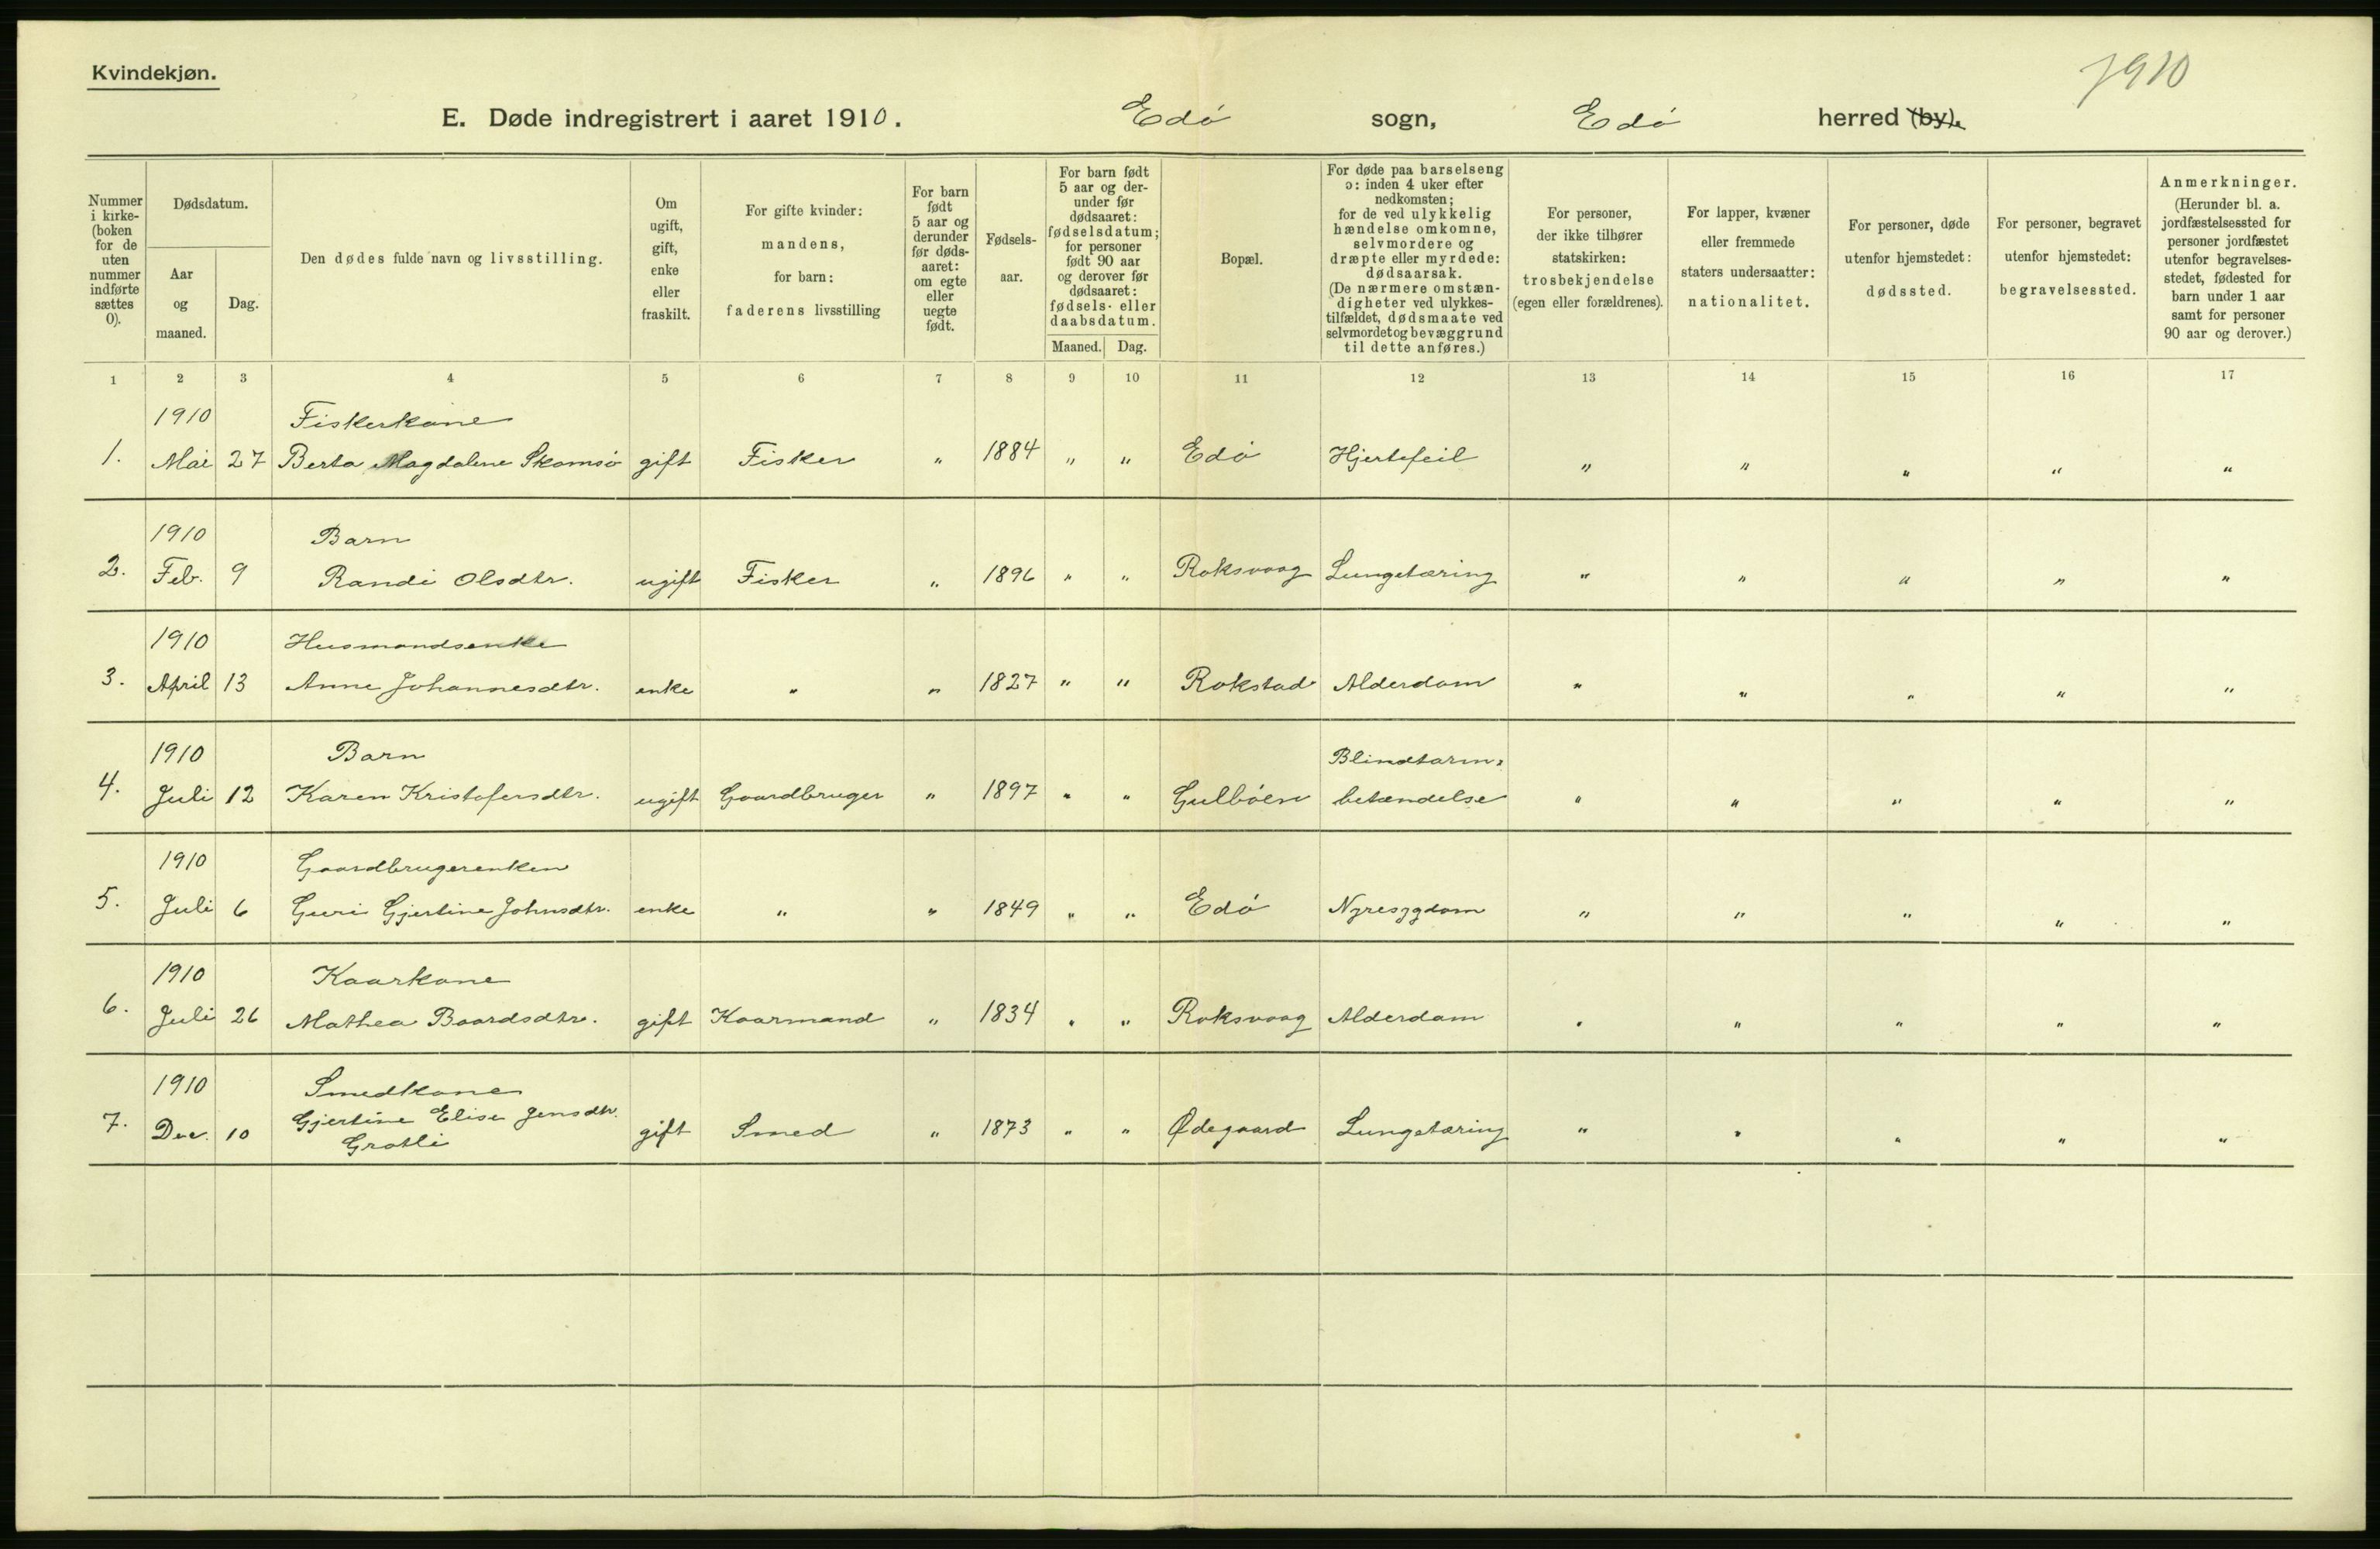 Kvindekjøn.
1910
E. Døde indregistrert i aaret 1910. Edø sogn, Edø herred (by).
Nummer
i kirke-
(boken
for de
uten
nummer
indførte
sættes
0).
Dødsdatum.
Aar
og
maaned.
Dag.
Den dødes fulde navn og livsstilling.
Om
ugift,
gift,
enke
eller
fraskilt.
For gifte kvinder:
mandens,
for barn:
faderens livsstilling
For barn
født
5 aar og
derunder
før døds-
aaret:
om egte
eller
uegte
født.
Fødsels-
aar.
For barn født
5 aar og der-
under før
dødsaaret:
fødselsdatum;
for personer
født 90 aar
og derover før
dødsaaret:
fødsels- eller
daabsdatum.
Maaned. Dag.
Bopæl.
For døde paa barselseng
ɔ: inden 4 uker efter
nedkomsten;
for de ved ulykkelig
hændelse omkomne,
selvmordere og
dræpte eller myrdede:
dødsaarsak.
(De nærmere omstæn-
digheter ved ulykkes-
tilfældet, dødsmaate ved
selvmordet og bevæggrund
til dette anføres.)
For personer,
der ikke tilhører
statskirken:
trosbekjendelse
(egen eller forældrenes).
For lapper, kvæner
eller fremmede
staters undersaatter:
nationalitet.
For personer, døde
utenfor hjemstedet:
dødssted.
For personer, begravet
utenfor hjemstedet:
begravelsessted.
Anmerkninger.
(Herunder bl. a.
jordfæstelsessted for
personer jordfæstet
utenfor begravelses-
stedet, fødested for
barn under 1 aar
samt for personer
90 aar og derover.)
1 2 3 4 5 6 7 8 9 10 11 12 13 14 15 16 17
1910 Fiskerkone
1. Mai 27 Berta Magdalene Skomsø gift Fisker " 1884 " " Edø Hjertefeil " " " " "
1910 Barn
2. Feb. 9 Randi Olsdtr. ugift Fisker " 1896 " " Roksvaag Lungetæring " " " " "
1910 Husmandsenke
3. April 13 Anne Johannesdtr. enke " " 1827 " " Rokstad Alderdom " " " " "
1910 Barn Blindtarm-
4. Juli 12 Karen Kristofersdtr. ugift Gaardbruger " 1897 " " Gulbøen betændelse " " " " "
1910 Gaardbrugerenken
5. Juli 6 Guri Gjertine Johnsdtr. enke " " 1849 " " Edø Nyresygdom " " " " "
1910 Kaarkone
6. Juli 26 Mathea Baardsdtr. gift Kaarmand " 1834 " " Roksvaag Alderdom " " " " "
1910 Smedkone
7. Dec. 10 Gjertine Elise Jensdtr. gift Smed " 1873 " " Ødegaard Lungetæring " " " " "
Grotli